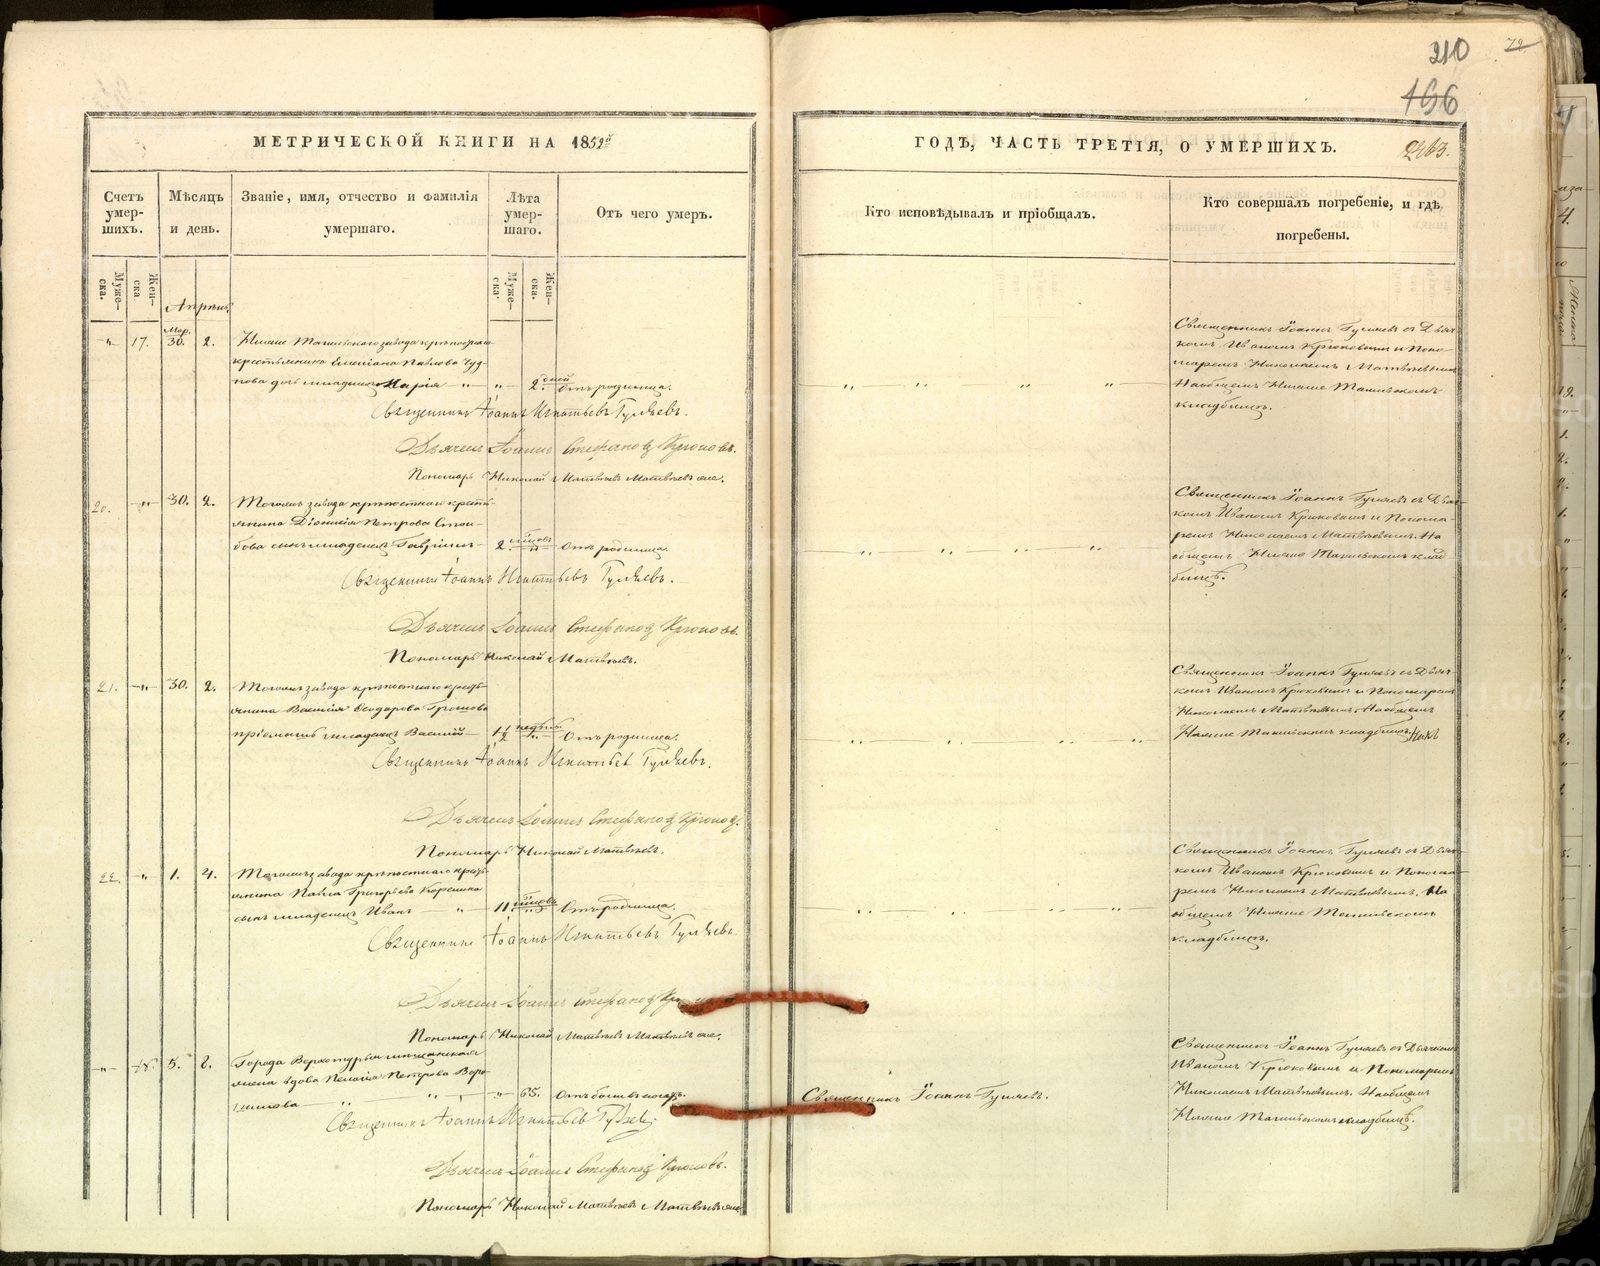 210
72
196
МЕТРИЧЕСКОЙ КНИГИ НА 1852й
ГОДЪ, ЧАСТЬ ТРЕТІЯ, О УМЕРШИХЪ.
2463.
Счетъ умер-шихъ.
Мѣсяцъ и день.
Званіе, имя, отчество и фамилія умершаго.
Лѣта умер-шаго.
Отъ чего умеръ.
Кто исповѣдывалъ и пріобщалъ.
Кто совершалъ погребеніе, и гдѣ погребены.
Муже-ска.
Жен-ска
Муже-ска.
Жен-ска.
Апрѣль
17. Мар. 30. 2. Нижне Тагильскаго завода
крестьянина Павлова
младенецъ Марія 2. дней Отъ родимца.
Священникъ Іоаннъ Игнатьевъ Гуляевъ.
Дьячекъ Іоаннъ Стефановъ Крюковъ.
Пономарь Николай Матвѣевъ
Священникъ Іоаннъ Гуляевъ съ Дьяч-
комъ Иваномъ Крюковымъ и Поно-
маремъ Николаемъ Матвѣевымъ
На общемъ Нижне Тагильскомъ
кладбищѣ.
20. 30. 2. Тогожъ завода крѣпостнаго кресть-
янина Діонисія Петрова
сынъ младенецъ Гавріилъ 2. Отъ родимца.
Священникъ Іоаннъ Игнатьевъ Гуляевъ.
Дьячекъ Іоаннъ Стефановъ Крюковъ.
Пономарь Николай Матвѣевъ.
Священникъ Іоаннъ Гуляевъ съ Дьяч-
комъ Иваномъ Крюковымъ и Понома-
ремъ Николаемъ Матвѣевымъ. На
общемъ Нижне Тагильскомъ клад-
бищѣ.
21. 30. 2. Тогожъ завода крѣпостнаго кресть-
янина Василія Ѳеодорова
пріемышъ младенецъ Василій Отъ родимца.
Священникъ Іоаннъ Игнатьевъ Гуляевъ.
Дьячекъ Іоаннъ Стефановъ Крюковъ.
Пономарь Николай Матвѣевъ.
Священникъ Іоаннъ Гуляевъ съ Дьяч-
комъ Иваномъ Крюковымъ и Пономаремъ
Николаемъ Матвѣевымъ. На общемъ
Нижне Тагильскомъ кладбищѣ.
22. 1. 4. Тогожъ завода крѣпостнаго кресть-
янина Павла Григорьева
сынъ младенецъ Иванъ 11. Отъ родимца.
Священникъ Іоаннъ Игнатьевъ Гуляевъ.
Дьячекъ Іоаннъ Стефановъ
Пономарь Николай Матвѣевъ
Священникъ Іоаннъ Гуляевъ съ Дьяч-
комъ Иваномъ Крюковымъ и Понома-
ремъ Николаемъ Матвѣевымъ. На
общемъ Нижне Тагильскомъ
кладбищѣ.
18. 5. 8. Города Верхотурья мѣщанская
вдова Пелагія Петрова
65. Отъ
Священникъ Іоаннъ Игнатьевъ Гуляевъ.
Дьячекъ Іоаннъ Стефановъ Крюковъ.
Пономарь Николай Матвѣевъ
Священникъ Іоаннъ Гуляевъ.
Священникъ Іоаннъ Гуляевъ съ Дьячкомъ
Иваномъ Крюковымъ и Пономаремъ
Николаемъ Матвѣевымъ. На общемъ
Нижне Тагильскомъ кладбищѣ.
METRIKI.GASO-URAL.RU